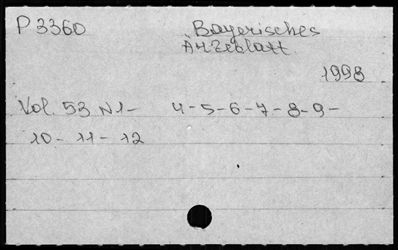 P 3360 Bayerisches
Ärzteblatt
1998
Vol. 53 N 1- 4-5-6-7-8-9-
10-11-12